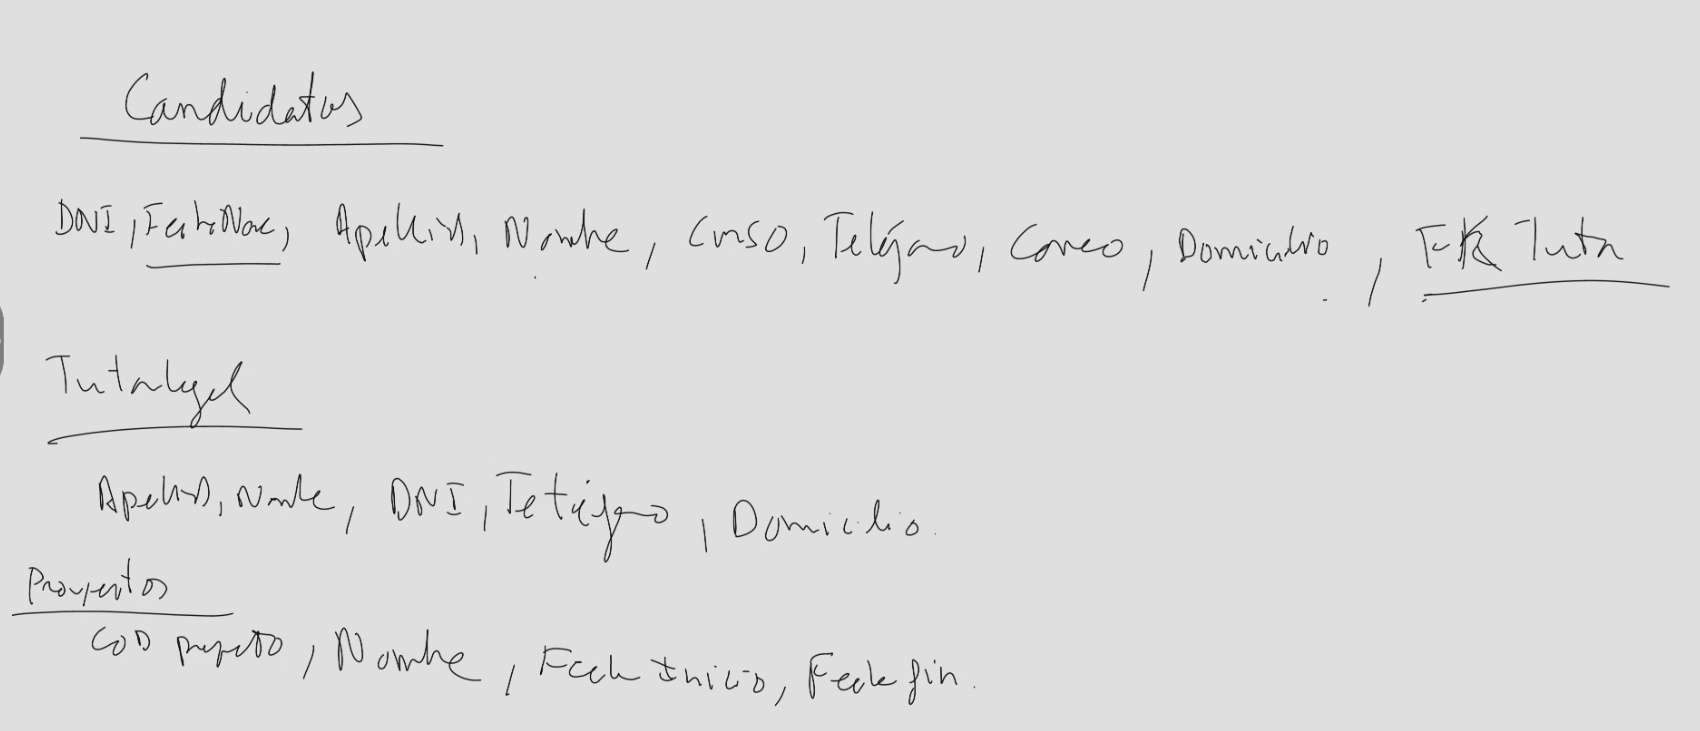 Candidatos
DNI, FechaNac, Apellidos, Nombre, Curso, Teléfono, Correo, Domicilio, FK Tutor
Tutorlegal
Apellidos, Nombre, DNI, Teléfono, Domicilio.
Proyectos
COD proyecto, Nombre, Fech Inicio, Fecha fin.